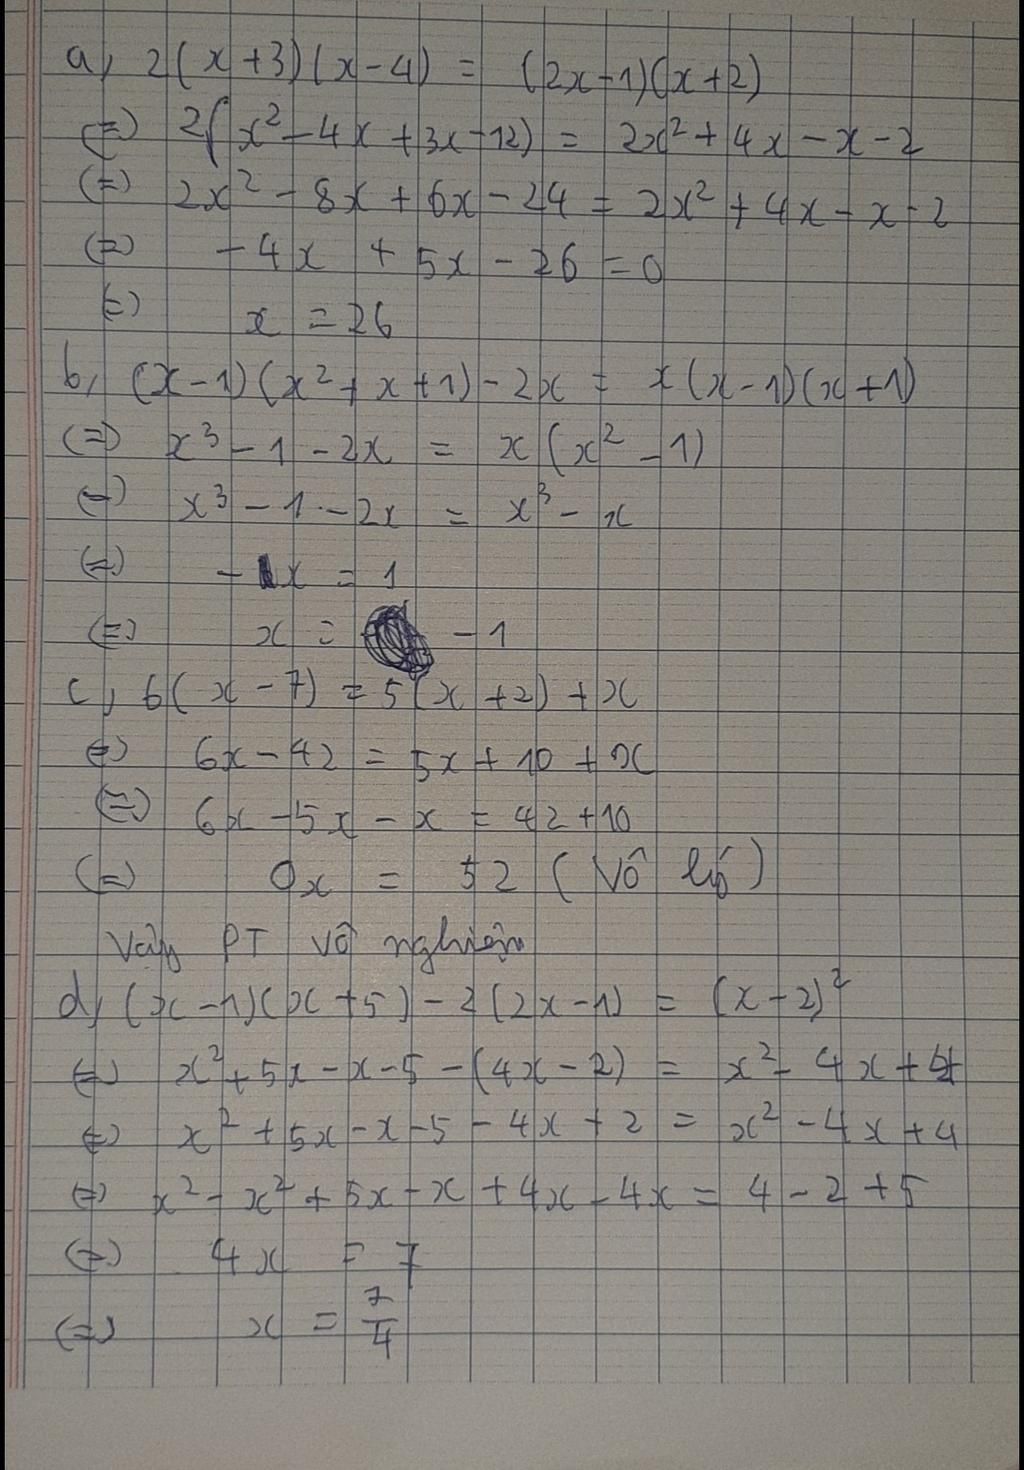 a, 2(x+3)(x-4) = (2x-1)(x+2)
(=) 2(x²-4x+3x-12) = 2x²+4x-x-2
(=) 2x²-8x+6x-24 = 2x²+4x-x-2
(=) -4x + 5x - 26 = 0
(=) x = 26
b, (x-1)(x²+x+1)-2x = x(x-1)(x+1)
(=) x³-1-2x = x(x²-1)
(=) x³-1-2x = x³-x
(=) -1x = 1
(=) x = -1
c, 6(x-7) = 5(x+2)+x
(=) 6x-42 = 5x+10+x
(=) 6x-5x-x = 42+10
(=) 0x = 52 (Vô lý)
Vậy PT vô nghiệm
d, (x-1)(x+5)-2(2x-1) = (x-2)²
(=) x²+5x-x-5-(4x-2) = x²-4x+4
(=) x²+5x-x-5-4x+2 = x²-4x+4
(=) x²-x²+5x-x+4x-4x = 4-2+5
(=) 4x = 7
(=) x = 7/4